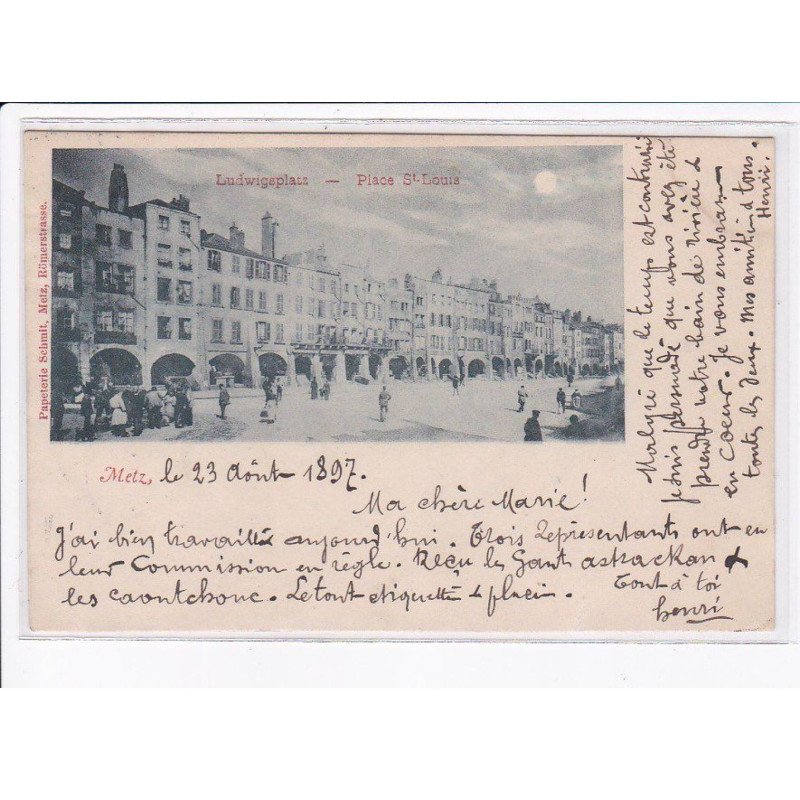 Ludwigsplatz — Place St-Louis
Papeterie Schmit, Metz, Römerstrasse.
Metz, le 23 Août 1897.
Ma chère Marie!
J'ai bien travaillé aujourd'hui. Trois représentants ont eu
leur Commission en règle. Reçu les Gants astrackan &
les caoutchouc. Le tout etiqueté & placé.
Tout à toi
henri
Malgré que le temps est contrarié
je suis persuadé que vous avez été
prendre votre bain de rivière &
en coeur. Je vous embrasse
toutes les deux. Mes amitiés à tous.
Henri.